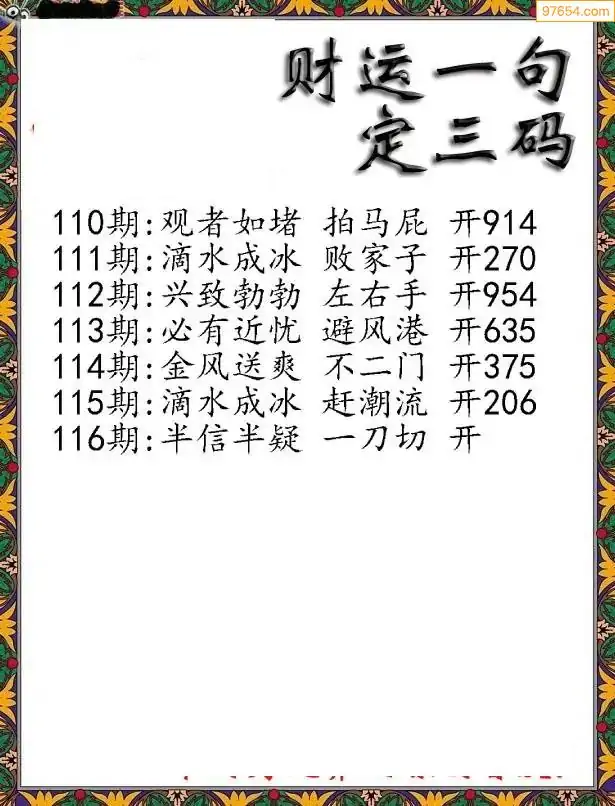 97654.com
财运一句
定三码
110期:观者如堵 拍马屁 开914
111期:滴水成冰 败家子 开270
112期:兴致勃勃 左右手 开954
113期:必有近忧 避风港 开635
114期:金风送爽 不二门 开375
115期:滴水成冰 赶潮流 开206
116期:半信半疑 一刀切 开